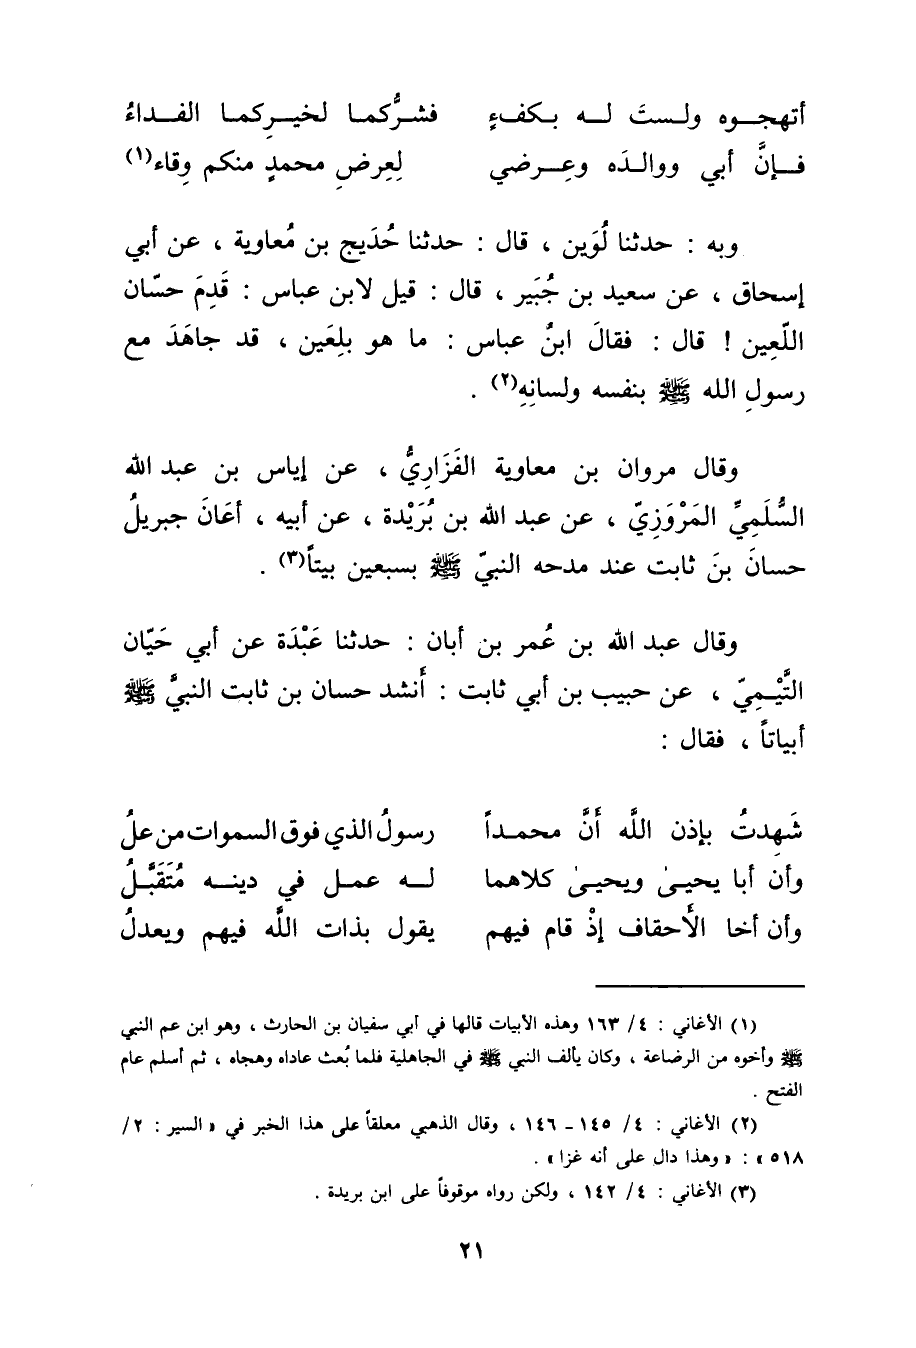 أتهجـــوه ولـــستَ لـــه بـكفـءٍ فشـرُّكمـا لخيـركمـا الفـداءُ
فـــإنَّ أبي ووالـدَه وعِـــرضي لِعِرضِ محمدٍ منكم وِقاء(١)
وبه : حدثنا لُوَين ، قال : حدثنا حُدَيج بن مُعاوية ، عن أبي
إسحاق ، عن سعيد بن جُبَير ، قال : قيل لابن عباس : قَدِمَ حسّان
اللّعِين ! قال : فقالَ ابنُ عباس : ما هو بلِعَين ، قد جاهَدَ مع
رسولِ الله ﷺ بنفسه ولسانِهِ(٢) .
وقال مروان بن معاوية الفَزَارِيُّ ، عن إياس بن عبد الله
السُّلَمِيِّ المَرْوَزِيّ ، عن عبد الله بن بُرَيْدة ، عن أبيه ، أعَانَ جبريلُ
حسانَ بنَ ثابت عند مدحه النبيّ ﷺ بسبعين بيتاً(٣) .
وقال عبد الله بن عُمر بن أبان : حدثنا عَبْدَة عن أبي حَيّان
التَّيْـمِيّ ، عن حبيب بن أبي ثابت : أَنشد حسان بن ثابت النبيَّ ﷺ
أبياتاً ، فقال :
شَهِدتُ بإذن اللَّه أَنَّ محمـداً رسولُ الذي فوق السموات من علُ
وأن أبا يحيىٰ ويحيىٰ كلاهما لـه عمـل في دينـه مُتَقَبَّلُ
وأن أخا الأَحقاف إذْ قام فيهم يقول بذات اللَّه فيهم ويعدلُ
(١) الأغاني : ٤/ ١٦٣ وهذه الأبيات قالها في أبي سفيان بن الحارث ، وهو ابن عم النبي
ﷺ وأخوه من الرضاعة ، وكان يألف النبي ﷺ في الجاهلية فلما بُعث عاداه وهجاه ، ثم أسلم عام
الفتح .
(٢) الأغاني : ٤/ ١٤٥ ـ ١٤٦ ، وقال الذهبي معلقاً على هذا الخبر في « السير : ٢/
٥١٨ » : « وهذا دال على أنه غزا » .
(٣) الأغاني : ٤/ ١٤٢ ، ولكن رواه موقوفاً على ابن بريدة .
٢١